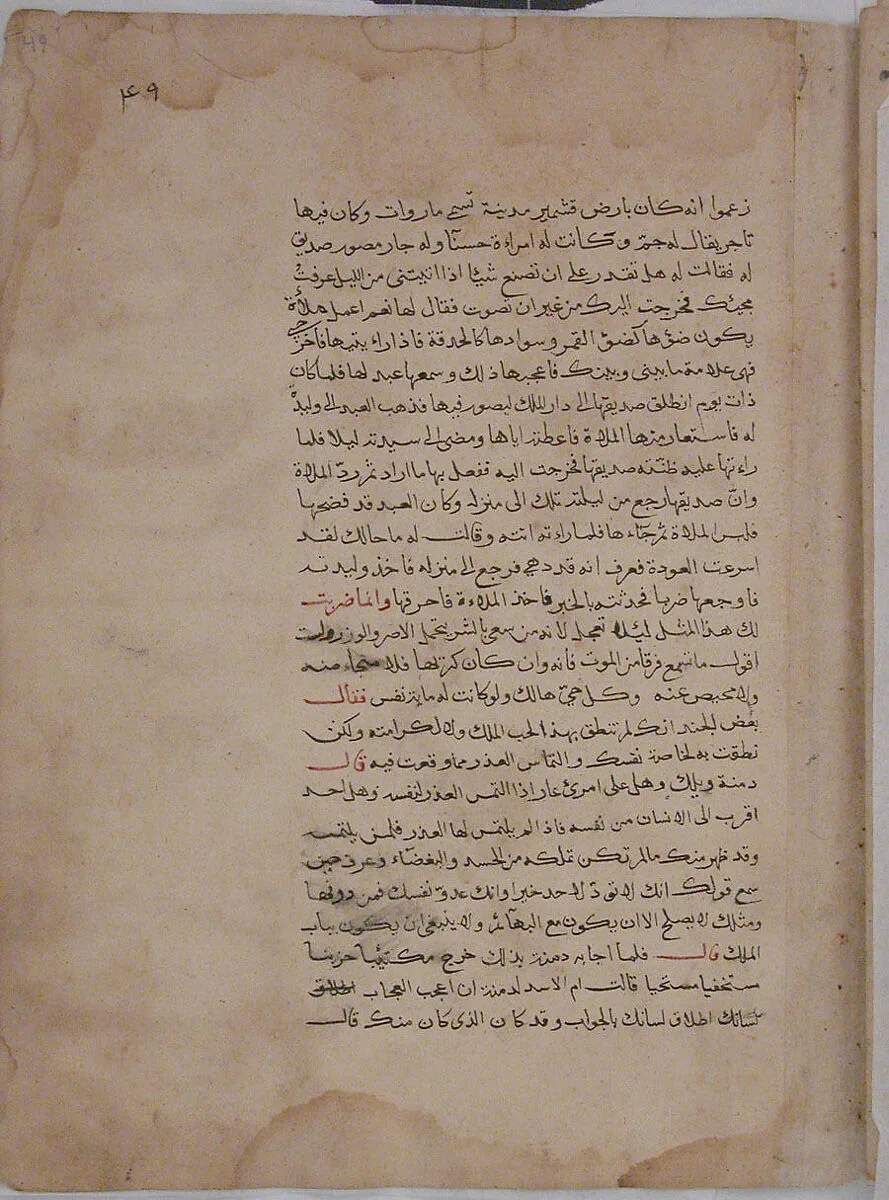 49
٤٩
زعموا انه كان بارض قشمير مدينة تسمى ماروات وكان فيها
تاجر يقال له وكانت له امراءة حسنا وله جار مصور صديق
له فقالت له هل تقدر على ان تصنع شيئا اذا اتيتنى من الليل عرفت
مجيئك فخرجت اليك من غير ان تصوت فقال لها نعم اعمل ملاأة
يكون ضوءها كضوء القمر وسوادها كالحدقة فاذا رايتيها فاخرجى
فهى علامة ما بينى وبينك فاعجبها ذلك وسمعها عبد لها فلما كان
ذات يوم انطلق صديقها الى دار الملك ليصور فيها فذهب العبد الى وليدة
له فاستعار منها الملاة فاعطته اياها ومضى الى سيدته ليلا فلما
راءتها عليه ظنته صديقها فخرجت اليه ففعل بها ما اراد ثم ردّ الملاة
وانّ صديقها رجع من ليلته تلك الى منزله وكان العبد قد فضحها
فلبس الملاة ثم جآءها فلما راءته اتته وقالت له ما حالك لقد
اسرعت العودة فعرف انه قد دهى فرجع الى منزله فاخذ وليدته
فاوجعها ضربا فحدثته بالخبر فاخذ الملاءة فاحرقها وانما ضربت
لك هذا المثل ليلا تعجل لانه من سعى بالشر يحتمل الاصر والوزر ولست
اقول ما تسمع فرقا من الموت فانه وان كان كريها فلا منجاء منه
ولا محيص عنه وكل حىّ هالك ولو كانت له ماية نفس فقال
بعض الجند انك لم تنطق بهذا لحب الملك ولا لكرامته ولكن
نطقت به لخاصة نفسك والتماس العذر مما وقعت فيه قال
دمنة ويلك وهل على امرئ عار اذا التمس العذر لنفسه وهل احد
اقرب الى الانسان من نفسه فاذا لم يلتمس لها العذر فلمن يلتمسه
وقد ظهر منك ما لم تكن تملكه من الحسد والبغضآء وعرف من
سمع قولك انك لا تودّ لاحد خيرا وانك عدوّ نفسك فمن دونها
ومثلك لا يصلح الا ان يكون مع البهائم ولا ينبغى ان يكون بباب
الملك قال فلما اجابه دمنة بذلك خرج مكتيئبا حزينا
مستخفيا مستحيا قالت ام الاسد لدمنة ان اعجب العجاب
لسانك اطلاق لسانك بالجواب وقد كان الذى كان منك قال